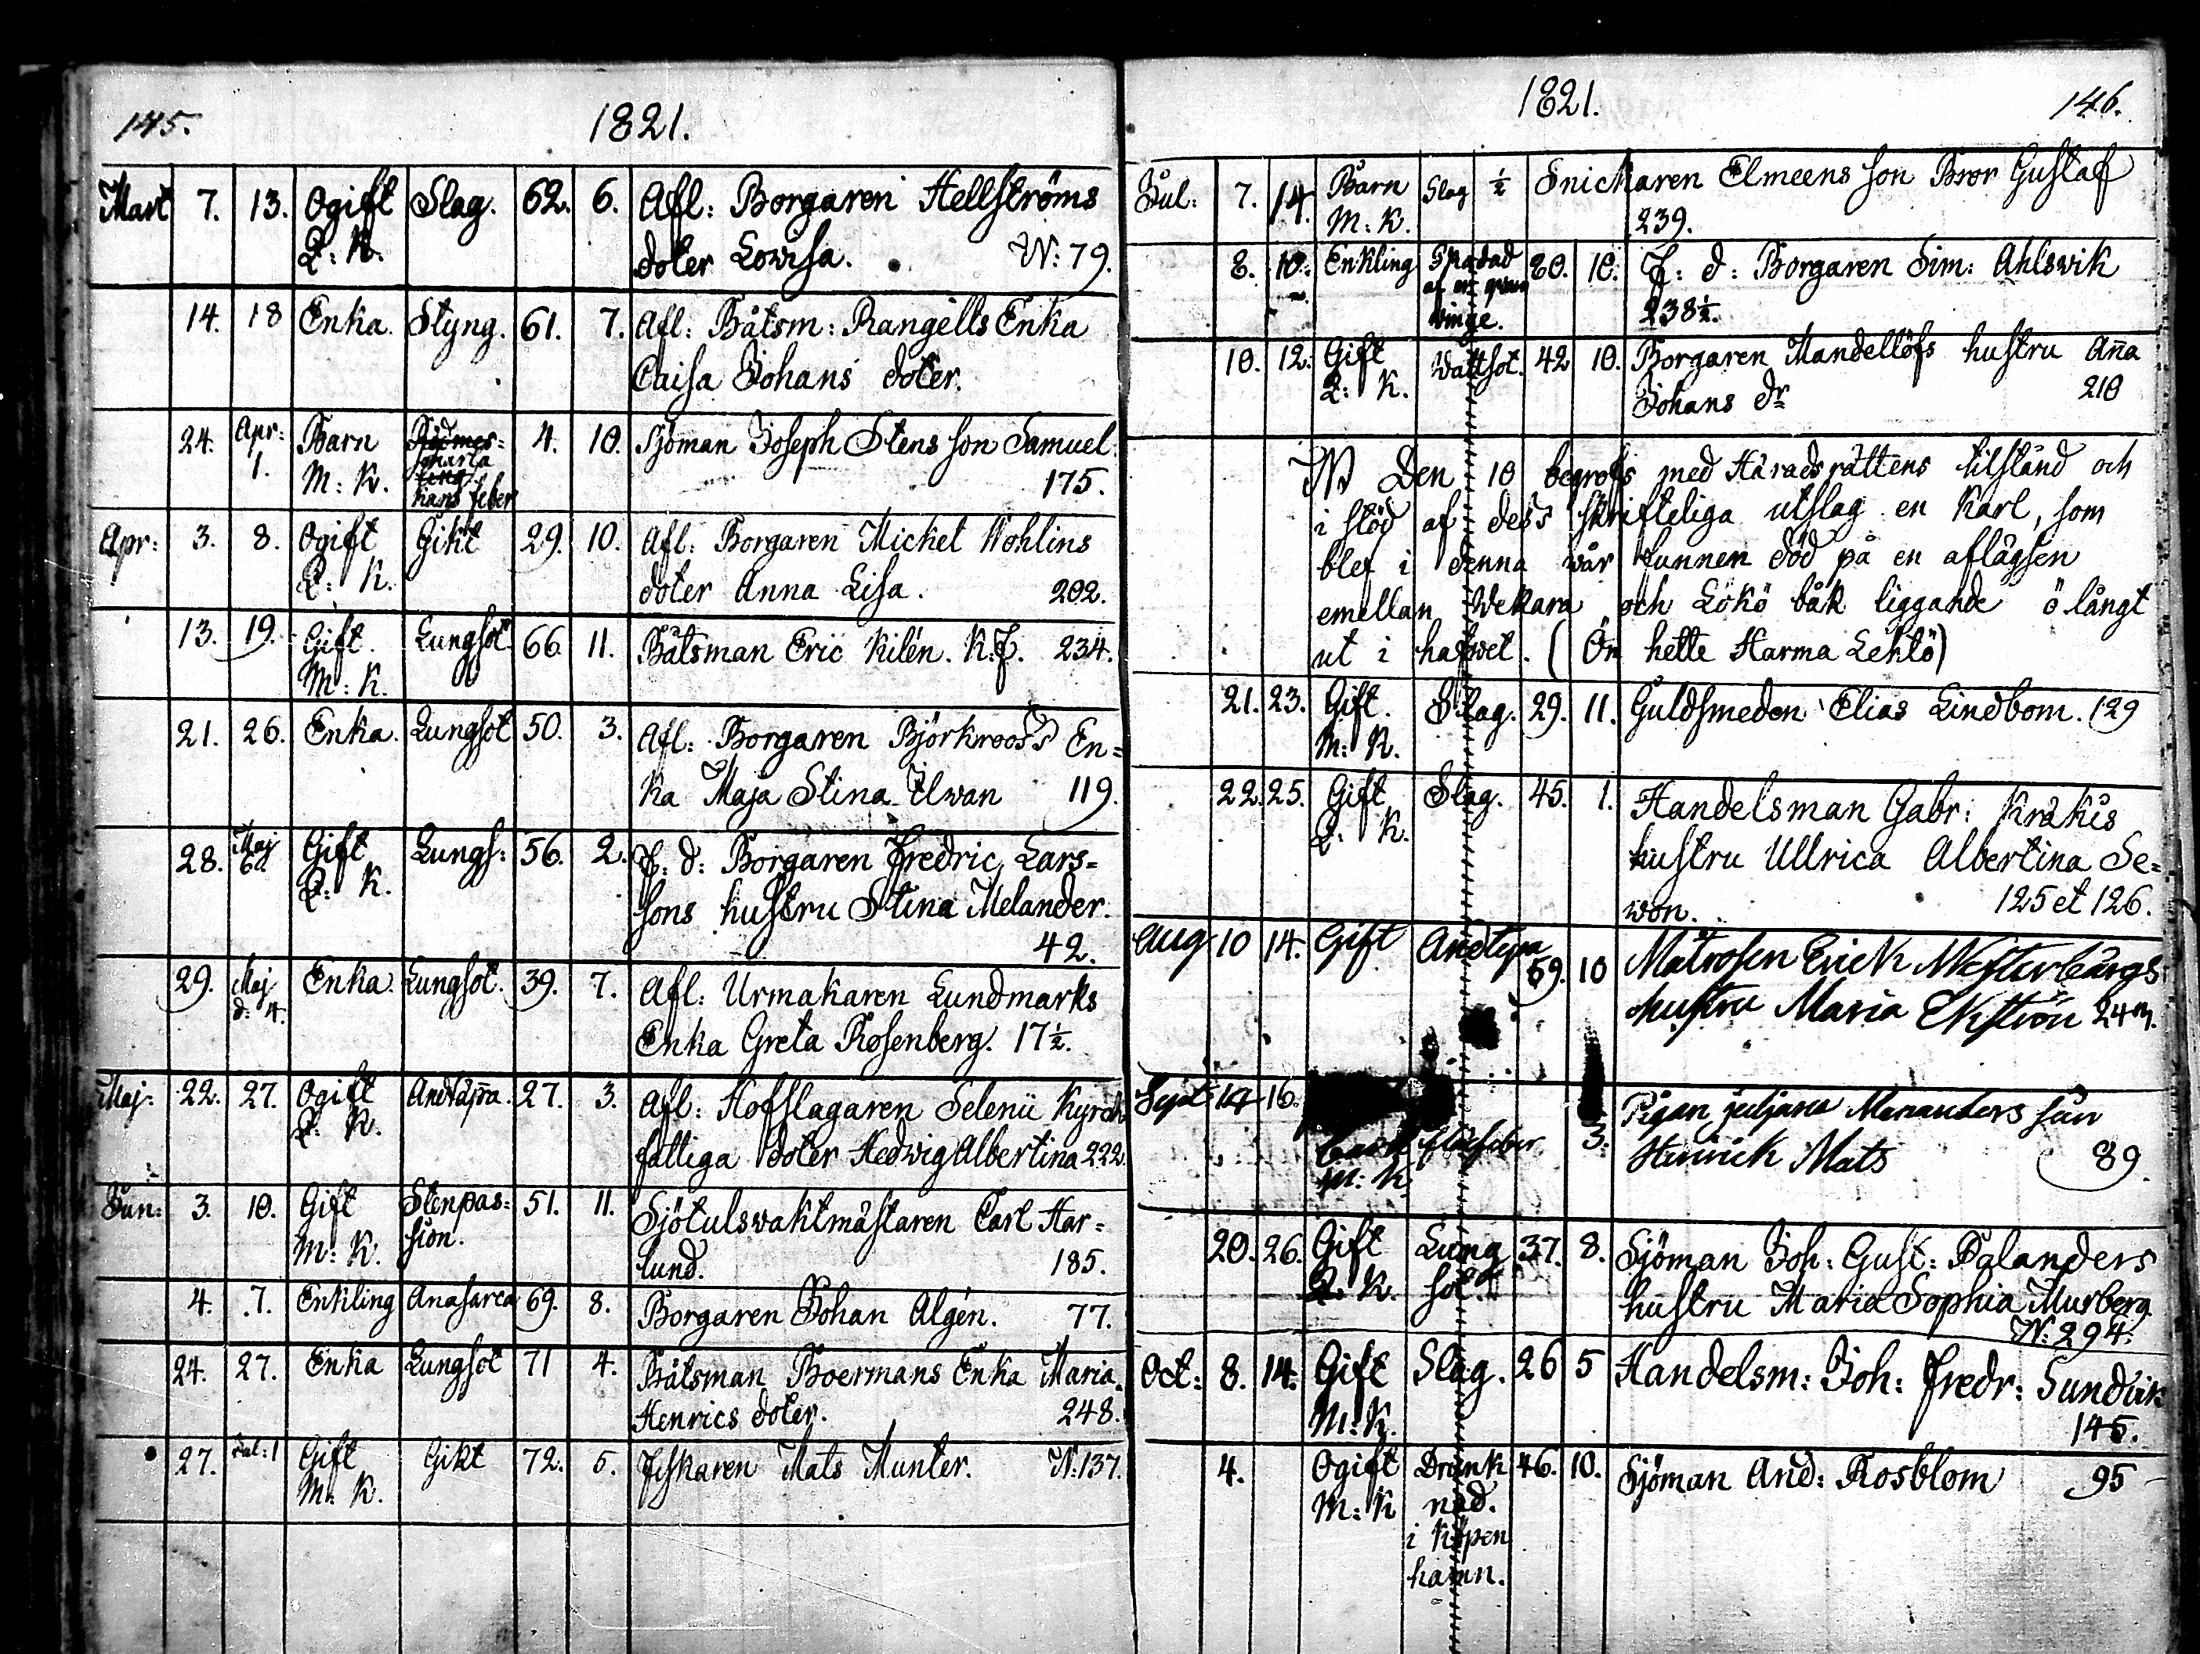 145.
1821.
Mart 7. 13. Ogift Slag. 62. 6. Afl: Borgaren Hellströms
Q: K. doter Lowisa. N: 79.
14. 18 Enka. Styng. 61. 7. Afl: Båtsm: Rangells Enka
Caisa Johans doter.
24. Apr: Barn 4. 10. Sjöman Joseph Stens son Samuel
1. M: K. 175.
feber
Apr: 3. 8. Ogift Gikt 29. 10. Afl: Borgaren Mickel Wohlins
Q: K. doter Anna Lisa. 202.
13. 19. Gift. Lungsot 66 11. Båtsman Eric Kilén. K.F. 234.
M: K.
21. 26. Enka. Lungsot 50. 3. Afl: Borgaren Björkroos's En=
ka Maja Stina Ilwan 119.
28. Maj Gift Lungs: 56. 2. F: d: Borgaren Fredric Lars=
6. Q: K. sons hustru Stina Melander.
42.
29. Maj Enka. Lungsot. 39. 7. Afl: Urmakaren Lundmarks
d: 4. Enka Greta Rosenberg. 17½.
Maj: 22. 27. Ogift Andtäppa. 27. 3. Afl: Hofslagaren Selenii Kyrck
Q: K. fattiga doter Hedwig Albertina 222
Jun: 3. 10. Gift Stenpas= 51. 11. Sjötulswaktmästaren Carl Har=
M: K. sion. lund. 185.
4. 7. Enkling Anasarca 69. 8. Borgaren Johan Algén. 77.
24. 27. Enka Lungsot 71 4. Båtsman Boermans Enka Maria
Henrics doter. 248.
27. Jul: 1 Gift Gikt 72. 5. Fiskaren Mats Munter. N: 137.
M: K.
1821.
146.
Jul: 7. 14. Barn Slag ½ Snickaren Elmeens son Bror Gustaf
M: K. 239.
8. 10. Enkling 80. 10. F: d: Borgaren Sim: Ahlswik
238½.
10. 12. Gift Wattsot. 42 10. Borgaren Mandellöfs hustru Anna
Q: K. Johans dr 210
NB Den 10 begrofs med Häradsrättens tilstånd och
i stöd af dess skrifteliga utslag en Karl, som
blef i denna wår funnen död på en aflägsen
emellan Wekara och Lökö båk liggande ö långt
ut i hafwet. (Ön hette Harma Lehtö)
21. 23. Gift. Slag. 29. 11. Guldsmeden Elias Lindbom. 129
M: K.
22. 25. Gift Slag. 45. 1. Handelsman Gabr: Kråkis
Q: K. hustru Ullrica Albertina Se=
won. 125 et 126.
Aug 10 14. Gift Andtepa 59. 10 Matrosen Erick Westerbärgs
hustru Maria Ekström
Sept: 14 16. 3. Pigan juljana Mananders sån
Barn M: K. Hinrick Mats 89.
20. 26. Gift Lung 37. 8. Sjöman Joh: Gust: Palanders
Q: K. sot. hustru Maria Sophia Murberg
N: 294.
Oct: 8. 14. Gift Slag. 26 5 Handelsm: Joh: Fredr: Sundvik
M: K. 145.
4. Ogift Drunk 46. 10. Sjöman And: Rosblom 95
M: K nad.
i Köpen
hamn.